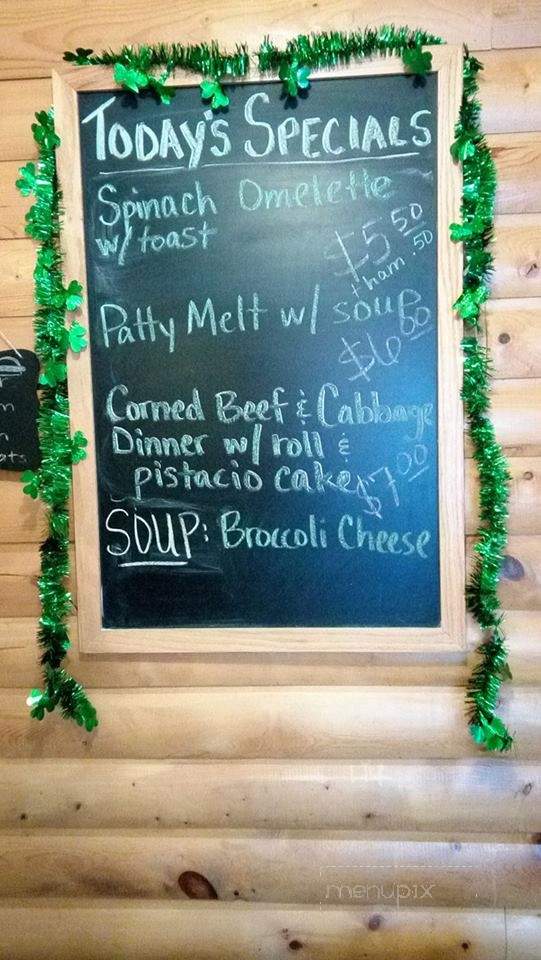 TODAY'S SPECIALS
Spinach Omelette
w/ toast
$5.50
+ ham .50
Patty Melt w/ soup
Corned Beef & Cabbage
Dinner w/ roll &
pistacio cake
$7.00
SOUP: Broccoli Cheese
menupix